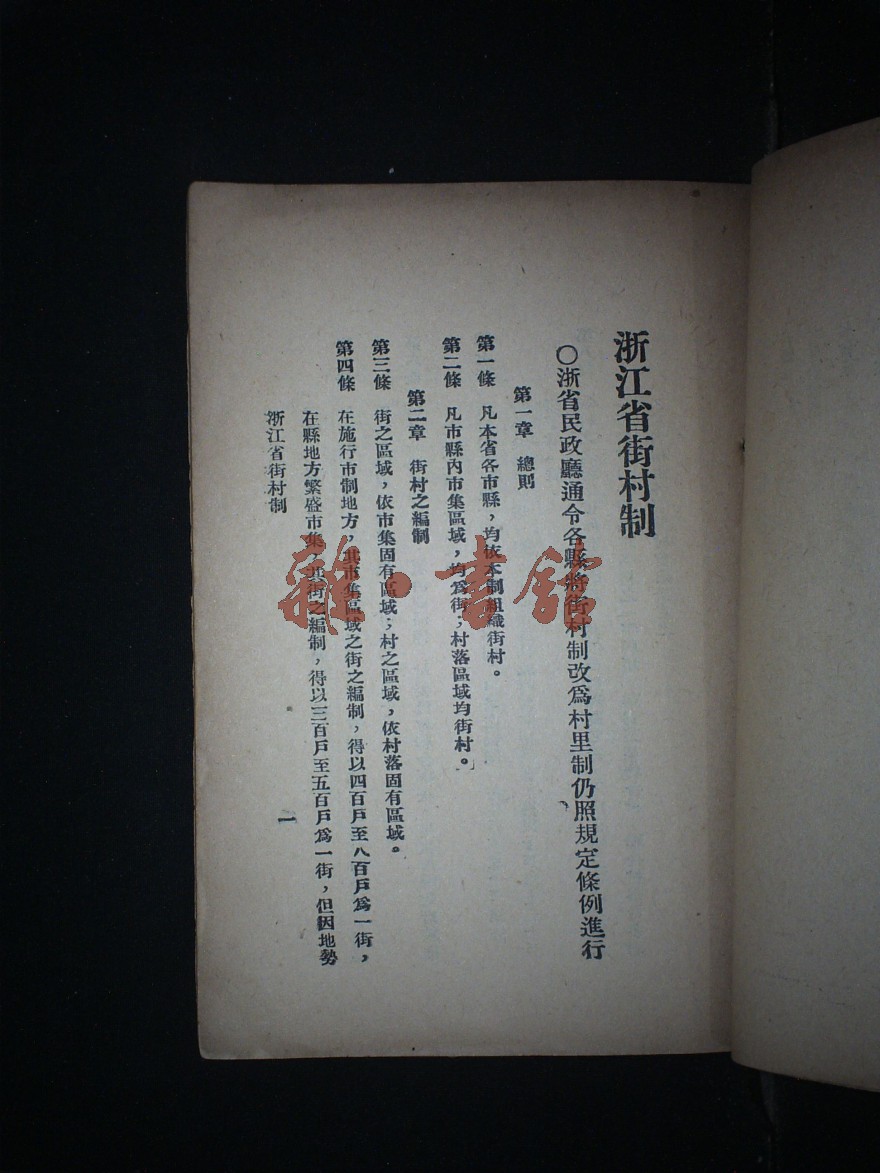 浙江省街村制
○浙省民政廳通令各縣將街村制改爲村里制仍照規定條例進行
第一章 總則
第一條 凡本省各市縣，均依本制組織街村。
第二條 凡市縣內市集區域，均爲街；村落區域均街村。
第二章 街村之編制
第三條 街之區域，依市集固有區域；村之區域，依村落固有區域。
第四條 在施行市制地方，其市集區域之街之編制，得以四百戶至八百戶爲一街，
在縣地方繁盛市集，其街之編制，得以三百戶至五百戶爲一街，但因地勢
浙江省街村制
一
雜·書館